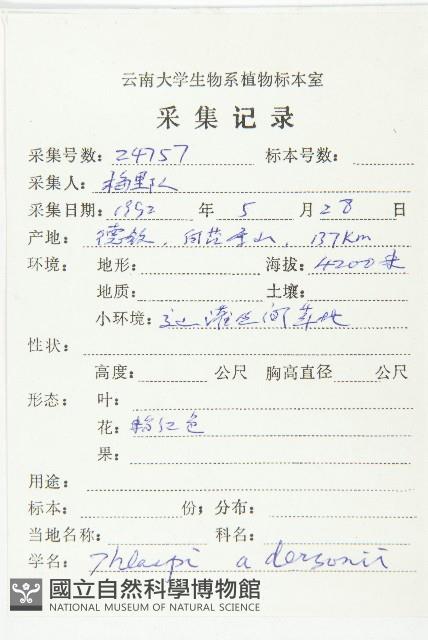 云南大学生物系植物标本室
采集记录
采集号数：24757 标本号数：
采集人：
采集日期：1992 年 5 月 28 日
产地：德钦，白茫雪山，137km
环境： 地形： 海拔：4200米
地质： 土壤：
小环境： 灌丛间草地
性状：
高度： 公尺 胸高直径 公尺
形态： 叶：
花：粉红色
果：
用途：
标本： 份；分布：
当地名称： 科名：
学名：Thlaspi
國立自然科學博物館
NATIONAL MUSEUM OF NATURAL SCIENCE